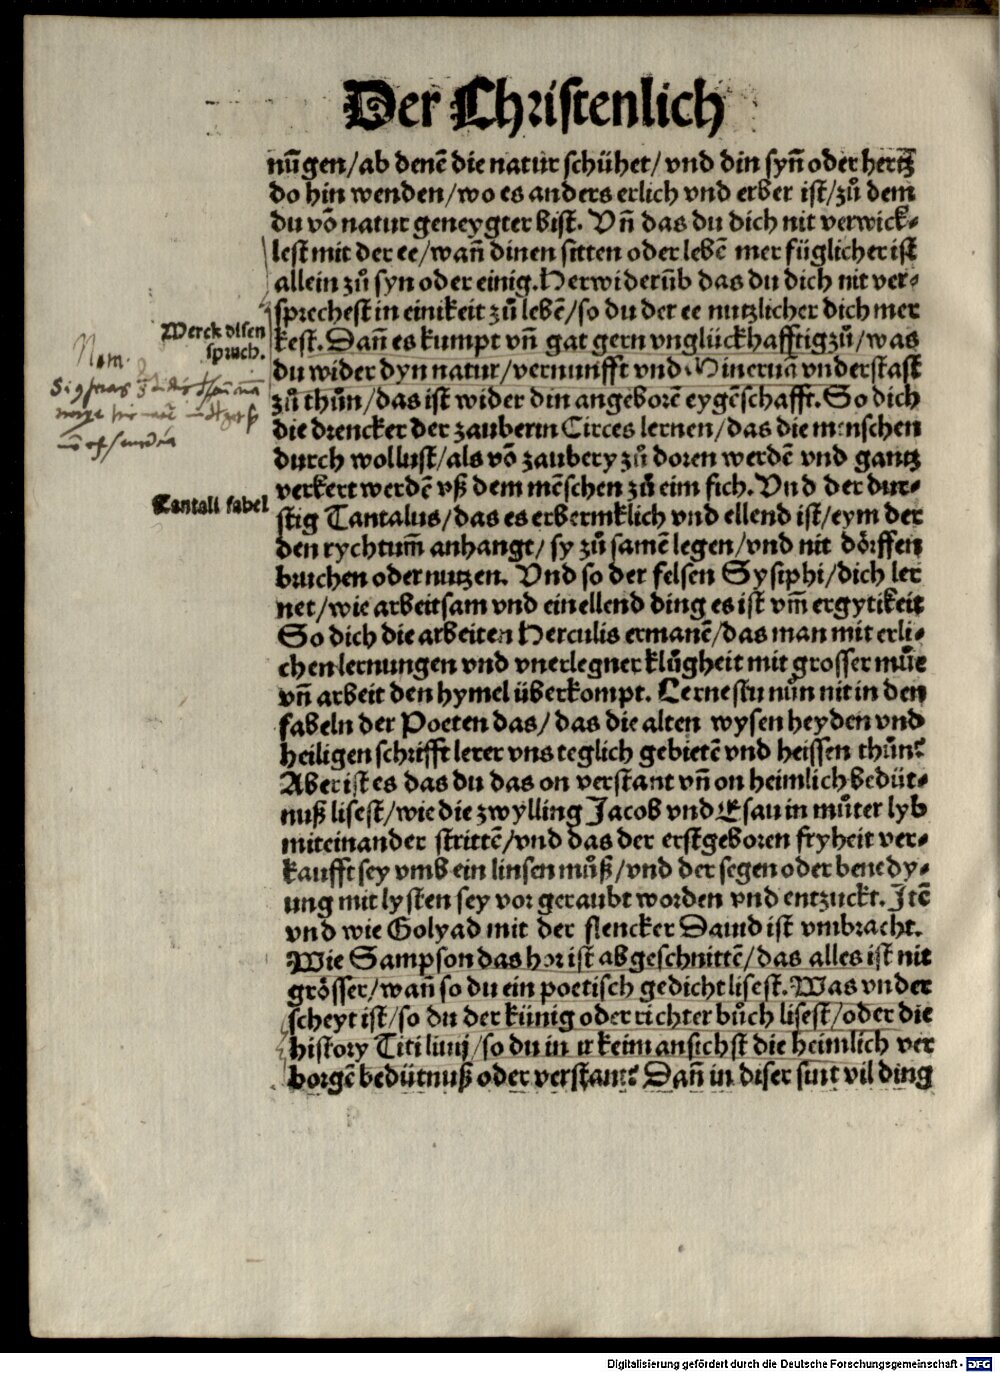 Der Christenlich
nūgen/ab denē die natur schühet/vnd din syñ oder hertz
do hin wenden/wo es anders erlich vnd erber ist/zů dem
du vō natur geneygter bist. Vñ das du dich nit verwick⸗
lest mit der ee/wañ dinen sitten oder lebē mer füglicher ist
allein zů syn oder einig. Herwiderūb das du dich nit ver⸗
sprechest in einikeit zů lebē/so du der ee nutzlicher dich mer
Werck disen
spruch.
kest. Dañ es kumpt vñ gat gern vnglückhafftig zů/was
du wider dyn natur/vernunfft vnd Mineruā vnderstast
zů thůn/das ist wider din angeborē eygēschafft. So dich
die drencker der zauberin Circes lernen/das die menschen
durch wollust/als vō zaubery zů doren werdē vnd gantz
verkert werdē vß dem mēschen zů eim fich. Vnd der dur⸗
Tantali fabel
stig Tantalus/das es erbermklich vnd ellend ist/eym der
den rychtum̄ anhangt/sy zů samē legen/vnd nit dörffen
bruchen oder nutzen. Vnd so der felsen Sysiphi/dich ler
net/wie arbeitsam vnd ein ellend ding es ist vm̄ ergytikeit
So dich die arbeiten Herculis ermanē/das man mit erli⸗
chen lernungen vnd vnerlegner klůgheit mit grosser můe
vñ arbeit den hymel überkompt. Lernestu nůn nit in den
fabeln der Poeten das/das die alten wysen heyden vnd
heiligen schrifft lerer vns teglich gebietē vnd heissen thůn?
Aber ist es das du das on verstant vñ on heimlich bedüt⸗
nuß lisest/wie die zwylling Jacob vnd Esau in můter lyb
miteinander strittē/vnd das der erstgeboren fryheit ver⸗
kaufft sey vmb ein linsen můß/vnd der segen oder benedy⸗
ung mit lysten sey vor geraubt worden vnd entzuckt. Jtē
vnd wie Golyad mit der slencker Dauid ist vmbracht.
Wie Sampson das hor ist abgeschnittē/das alles ist nit
grösser/wañ so du ein poetisch gedicht lisest. Was vnder
scheyt ist/so du der künig oder richter bůch lisest/oder die
history Titi liuij/so du in ir keim ansichst die heimlich ver
borgē bedütnuß oder verstant? Dañ in diser sint vil ding
Digitalisierung gefördert durch die Deutsche Forschungsgemeinschaft - DFG